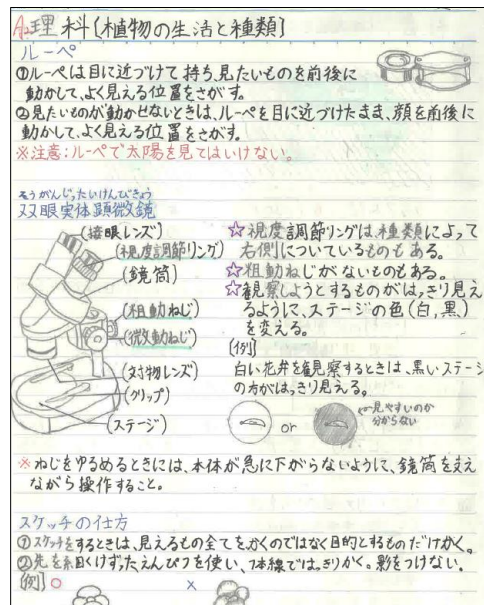 A 理科〔植物の生活と種類〕
ルーペ
①ルーペは目に近づけて持ち、見たいものを前後に
動かして、よく見える位置をさがす。
②見たいものが動かせないときは、ルーペを目に近づけたまま、顔を前後に
動かして、よく見える位置をさがす。
※注意:ルーペで太陽を見てはいけない。
そうがんじったいけんびきょう
双眼実体顕微鏡
(接眼レンズ)
(視度調節リング)
(鏡筒)
(粗動ねじ)
(微動ねじ)
(対物レンズ)
(クリップ)
(ステージ)
☆視度調節リングは、種類によって
右側についているものもある。
☆粗動ねじがないものもある。
☆観察しようとするものがはっきり見え
るように、ステージの色(白,黒)
を変える。
〔例〕
白い花弁を観察するときは、黒いステージ
の方がはっきり見える。
or
←見やすいのか
分からない
※ねじをゆるめるときには、本体が急に下がらないように、鏡筒を支え
ながら操作すること。
スケッチの仕方
①スケッチをするときは、見えるもの全てをかくのではなく目的とするものだけかく。
②先を細くけずったえんぴつを使い、1本線ではっきりかく。影をつけない。
〔例〕○ ×